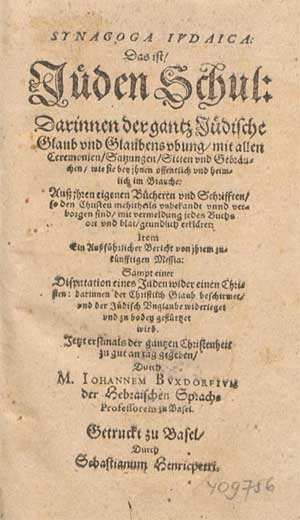 SYNAGOGA IVDAICA:
Das ist/
Jüden Schul:
Darinnen der gantz Jüdische
Glaub vnd Glaubensvbung/ mit allen
Ceremonien/ Satzungen/ Sitten vnd Gebräu-
chen/ wie sie bey jhnen öffentlich vnd heim-
lich im Brauche:
Auß jhren eigenen Bücheren vnd Schrifften/
so den Christen mehrtheils vnbekandt vnnd ver-
borgen sind/ mit vermeldung jedes Buchs
ort vnd blat/ grundlich erkläret:
Item
Ein Außführlicher Bericht von jhrem zu-
künfftigen Messia:
Sampt einer
Disputation eines Jüden wider einen Chri-
sten: darinnen der Christlich Glaub beschirmet/
vnd der Jüdisch Vnglaube widerleget
vnd zu boden gestürtzet
wird.
Jetzt erstmals der gantzen Christenheit
zu gut an tag gegeben/
Durch
M. IOHANNEM BVXDORFIVM
der Hebraischen Sprach
Professorem zu Basel.
Getruckt zu Basel/
Durch
Sebastianum Henricpetri.
409756